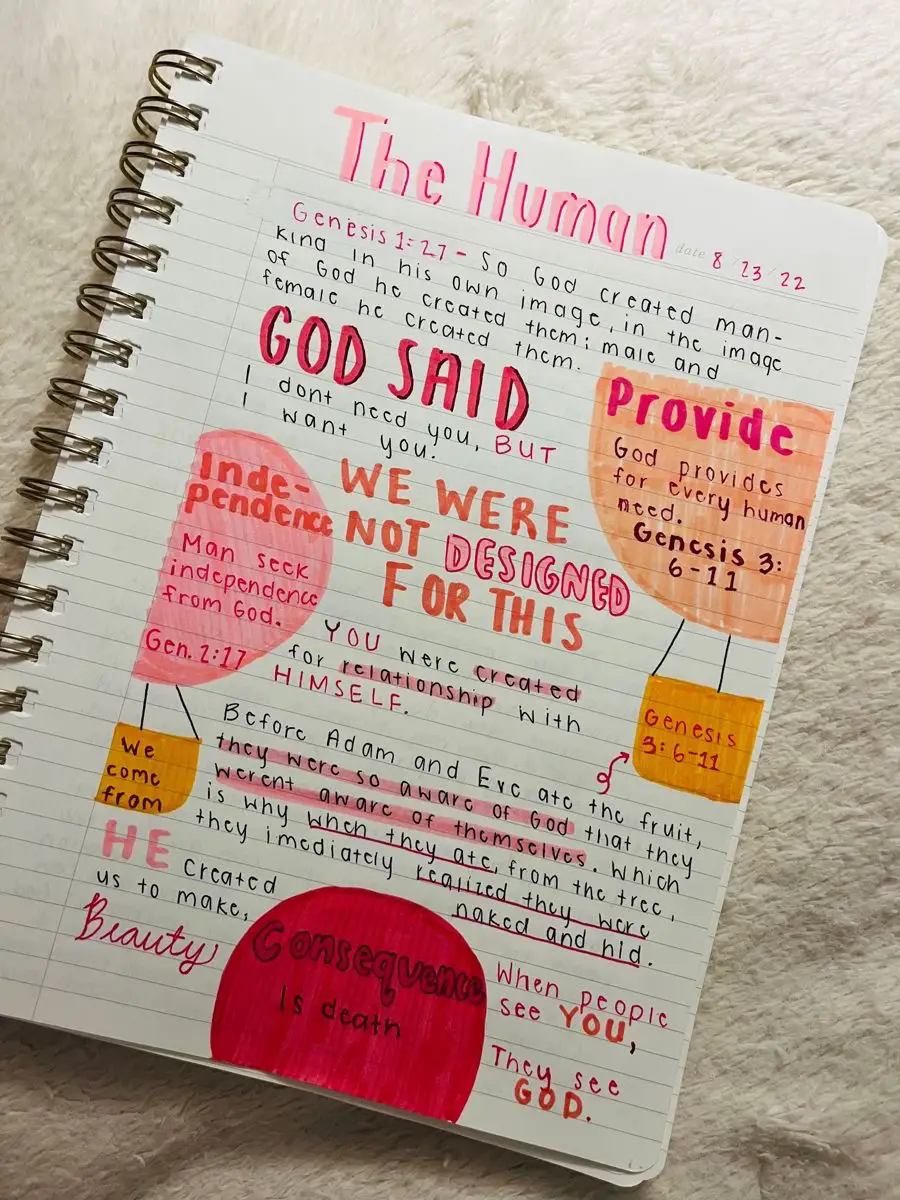 The Human
date 8/23/22
Genesis 1:27 - So God created man-
kind in his own image, in the image
of God he created them; male and
female he created them.
GOD SAID
I dont need you, BUT
I want you.
Provide
God provides
for every human
need.
Genesis 3:
6-11
Genesis
3:6-11
Inde-
pendence
Man seek
independence
from God.
Gen. 2:17
We
come
from
WE WERE
NOT DESIGNED
FOR THIS
YOU were created
for relationship with
HIMSELF.
Before Adam and Eve ate the fruit,
they were so aware of God that they
werent aware of themselves. Which
is why when they ate, from the tree,
they imediately realized they were
naked and hid.
HE created
us to make,
Beauty
Consequence
is death
When people
see YOU,
They see
GOD.